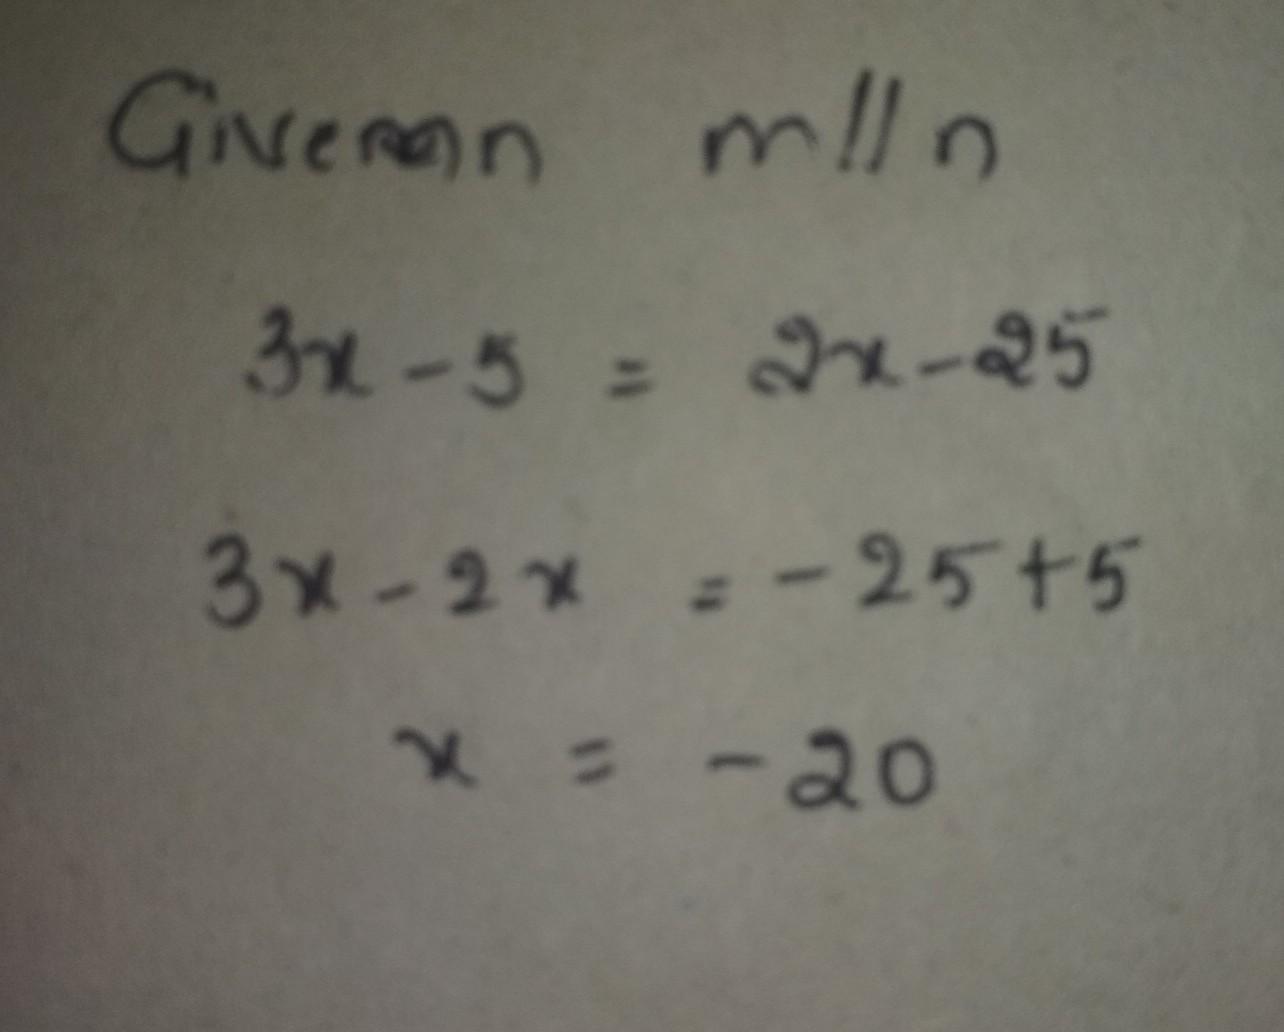 Given m || n
3x - 5 = 2x - 25
3x - 2x = - 25 + 5
x = - 20